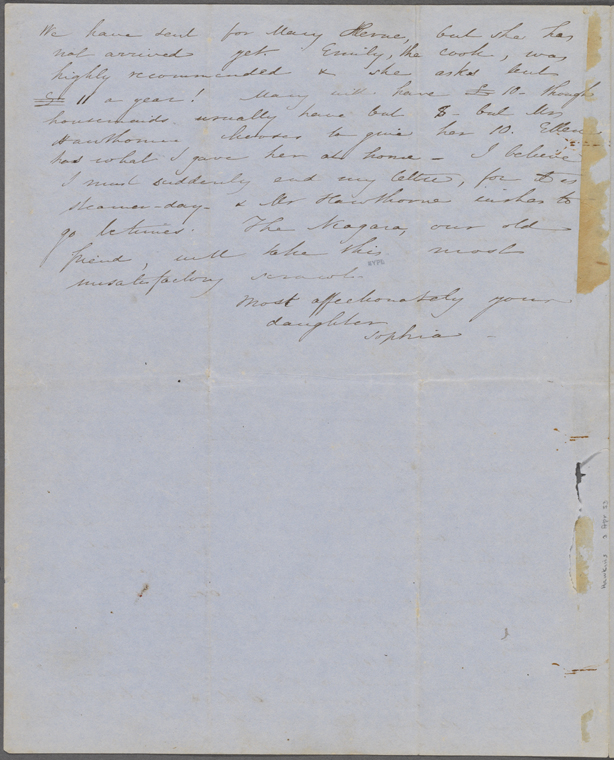 We have sent for Mary Herne, but she has
not arrived yet. Emily, the cook, was
highly recommended & she asks but
£ 11 a year! Mary will have £ 10 - though
housemaids usually have but 8 - but Mrs
Hawthorne chooses to give her 10. Ellen
has what I gave her at home - I believe
I must suddenly end my letter, for it is
steamer-day - & Mr Hawthorne wishes to
go betimes. The Niagara, our old
friend, will take this most
unsatisfactory scrawl.
NYPL
Most affectionately your
daughter
Sophia -